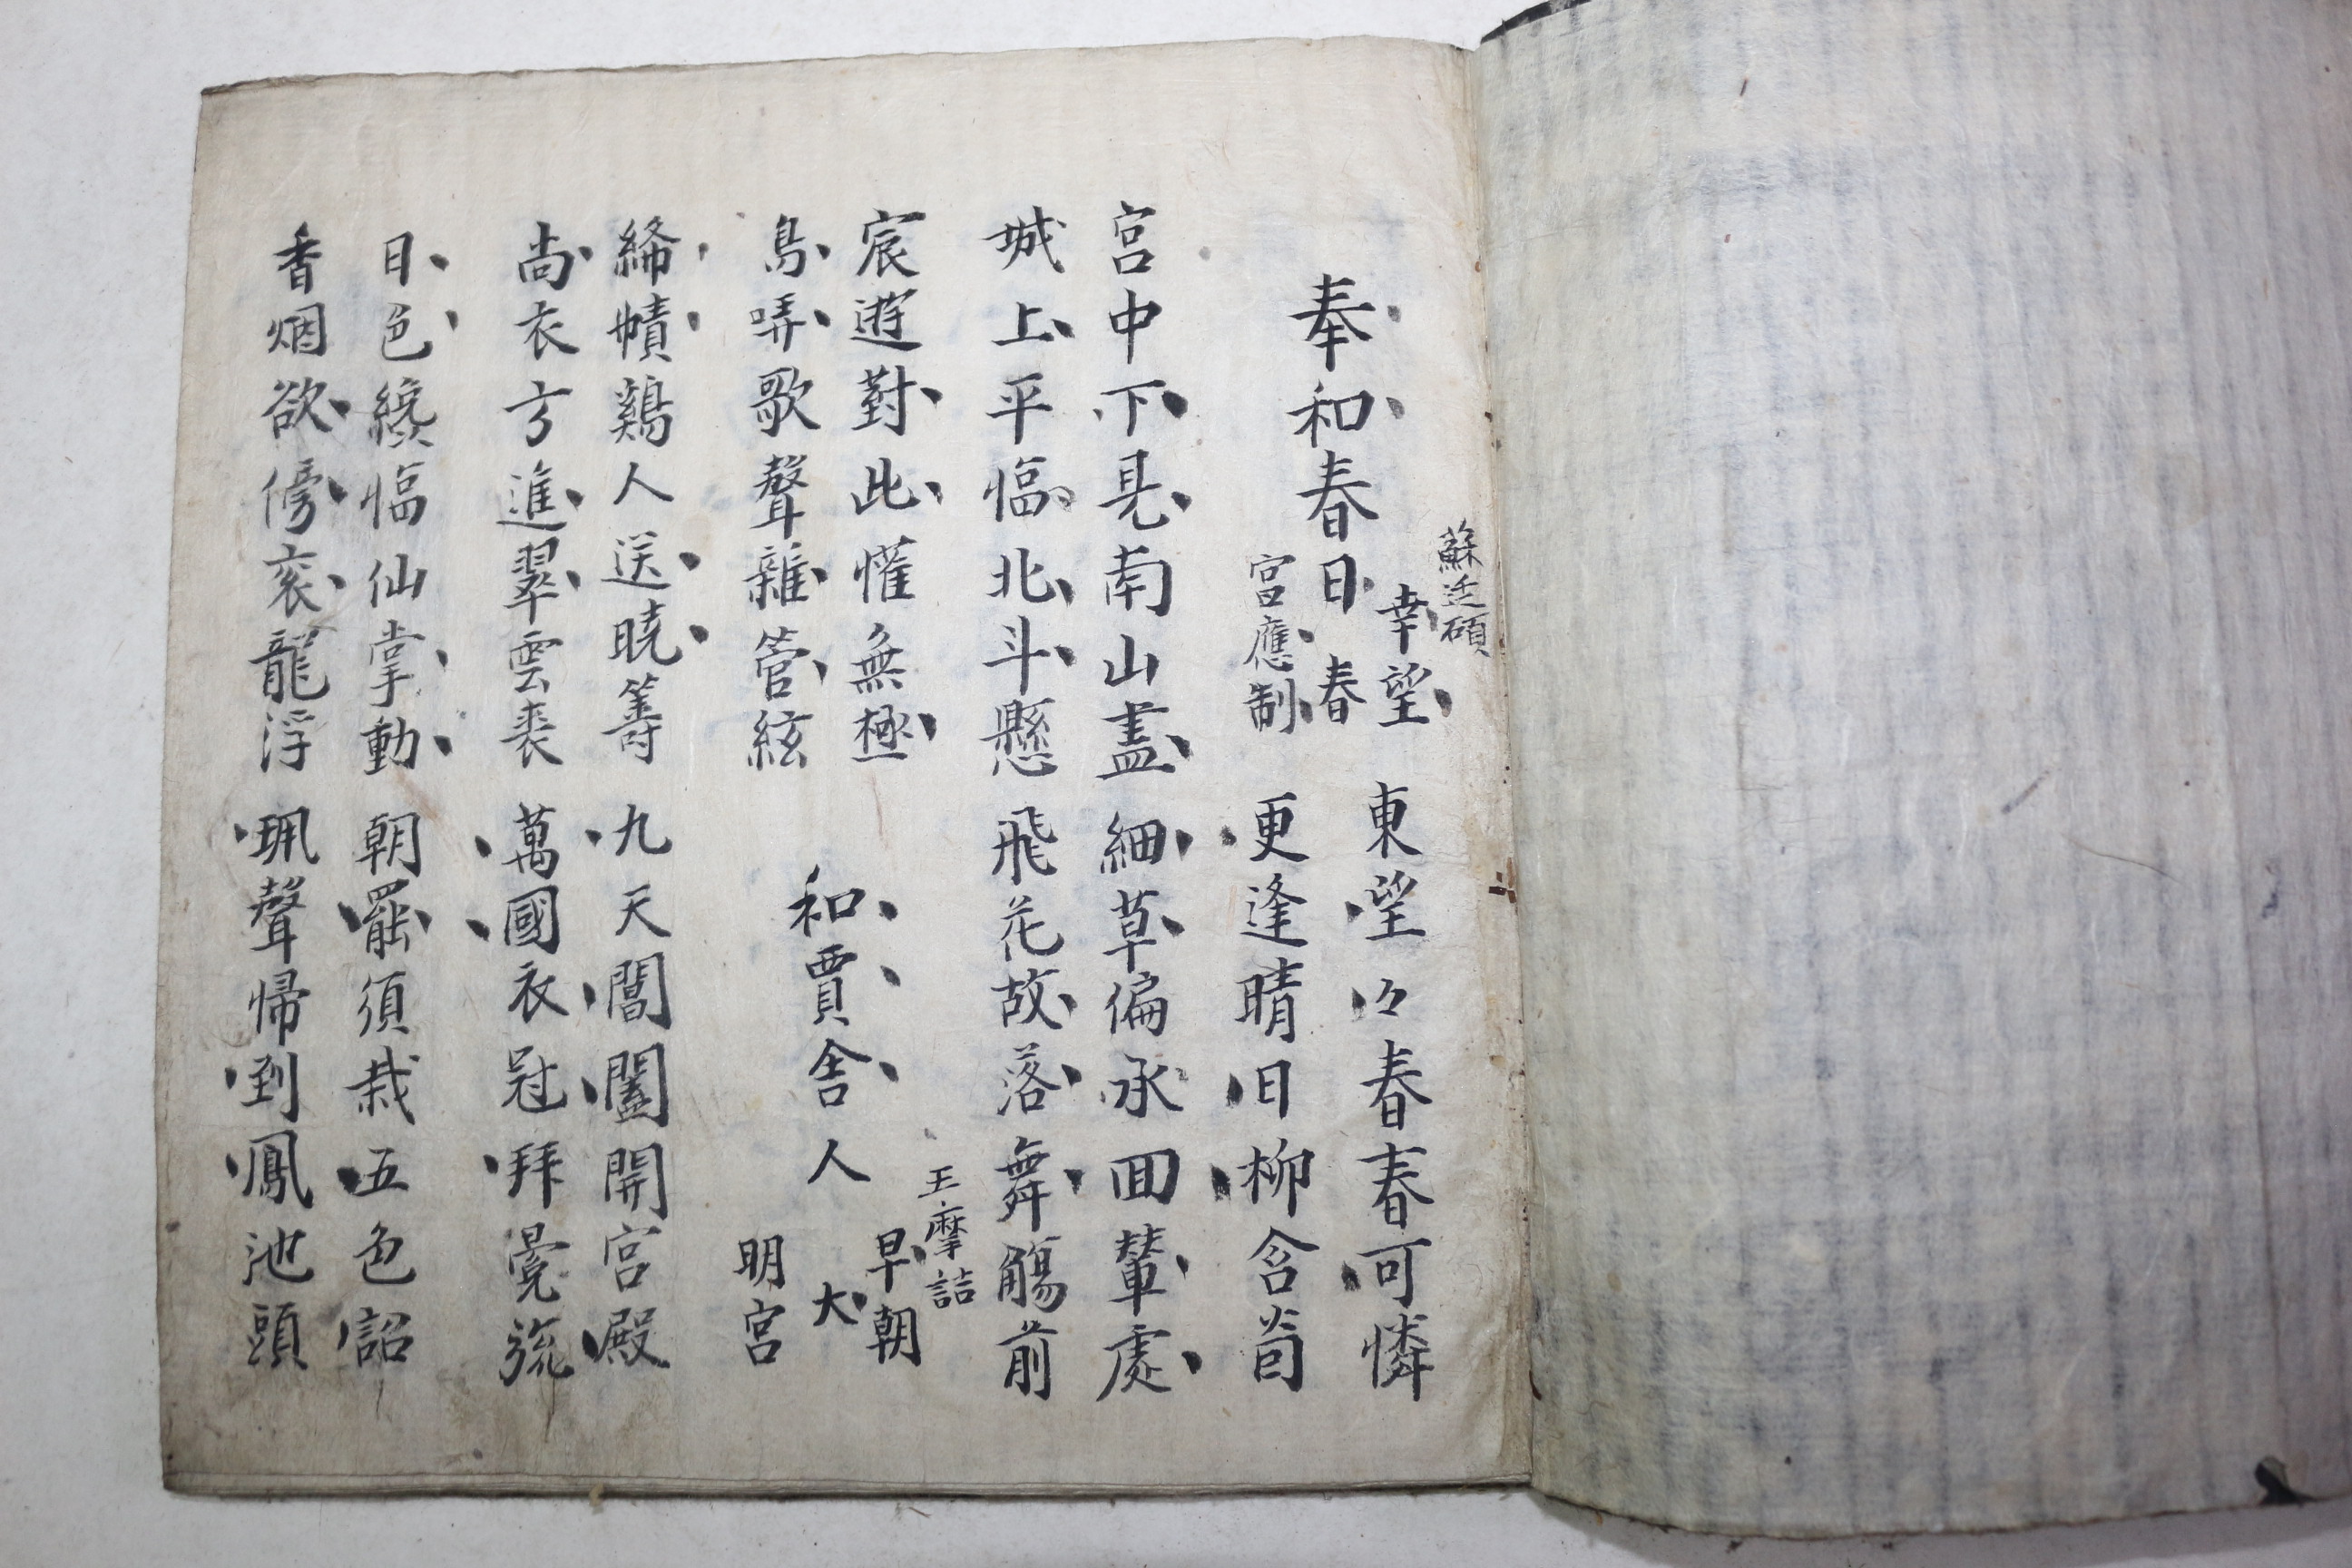 蘇廷碩
奉和春日
幸望
春
宮應制
東望々春春可憐
更逢晴日柳含
宮中下見南山盡
城上平臨北斗懸
細草偏承回輦處
飛花故落舞觴前
宸遊對此懽無極
鳥哢歌聲雜管絃
王摩詰
和賈舍人
早朝
大
明宮
絳幘鷄人送曉籌
尚衣方進翠雲裘
九天閶闔開宮殿
萬國衣冠拜冕旒
日色纔臨仙掌動
香烟欲傍袞龍浮
朝罷須栽五色詔
珮聲歸到鳳池頭